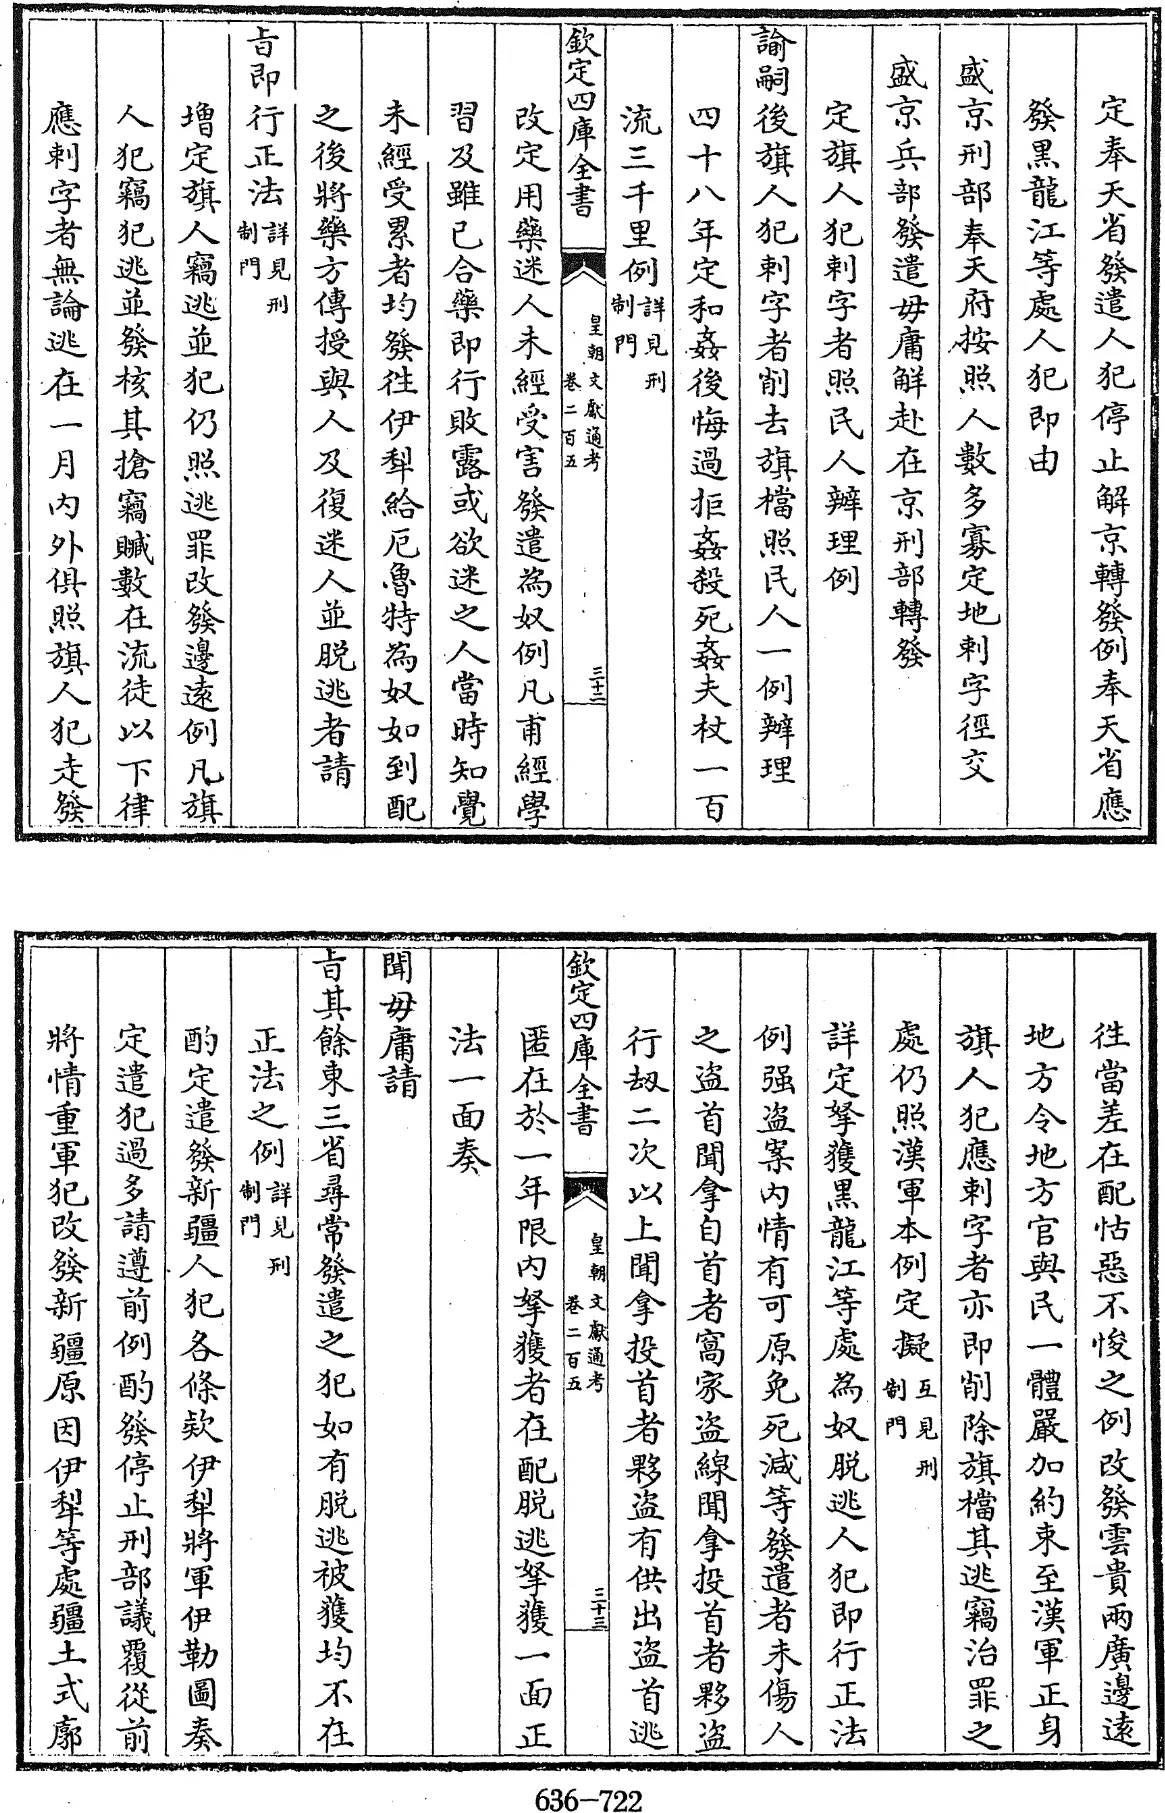 定奉天省發遣人犯停止解京轉發例奉天省應
發黑龍江等處人犯即由
盛京刑部奉天府按照人數多寡定地刺字徑交
盛京兵部發遣毋庸解赴在京刑部轉發
定旗人犯刺字者照民人辦理例
諭嗣後旗人犯刺字者削去旗檔照民人一例辦理
四十八年定和姦後悔過拒姦殺死姦夫杖一百
流三千里例詳見刑制門
欽定四庫全書 皇朝文獻通考卷二百五 三十二
改定用藥迷人未經受害發遣為奴例凡甫經學
習及雖已合藥即行敗露或欲迷之人當時知覺
未經受累者均發往伊犁給厄魯特為奴如到配
之後將藥方傳授與人及復迷人並脫逃者請
旨即行正法詳見刑制門
增定旗人竊逃並犯仍照逃罪改發邊遠例凡旗
人犯竊犯逃並發核其搶竊贓數在流徒以下律
應刺字者無論逃在一月內外俱照旗人犯走發
往當差在配怙惡不悛之例改發雲貴兩廣邊遠
地方令地方官與民一體嚴加約束至漢軍正身
旗人犯應刺字者亦即削除旗檔其逃竊治罪之
處仍照漢軍本例定擬互見刑制門
詳定拏獲黑龍江等處為奴脫逃人犯即行正法
例强盗案內情有可原免死減等發遣者未傷人
之盗首聞拿自首者窩家盗線聞拿投首者夥盗
行刼二次以上聞拿投首者夥盗有供出盗首逃
欽定四庫全書 皇朝文獻通考卷二百五 三十三
匿在於一年限內拏獲者在配脫逃拏獲一面正
法一面奏
聞毋庸請
旨其餘東三省尋常發遣之犯如有脫逃被獲均不在
正法之例詳見刑制門
酌定遣發新疆人犯各條欵伊犁將軍伊勒圖奏
定遣犯過多請遵前例酌發停止刑部議覆從前
將情重軍犯改發新疆原因伊犁等處疆土式廓
636-722